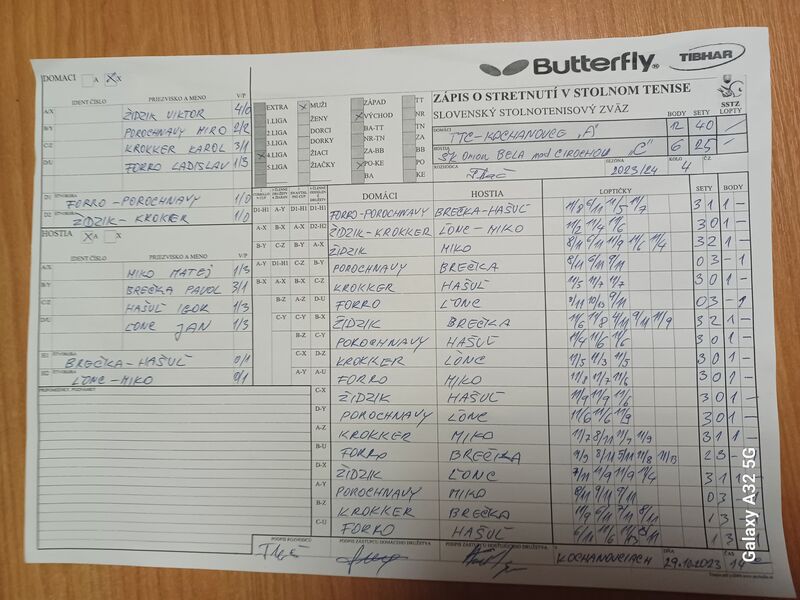 Butterfly
TIBHAR
DOMÁCI A X
ZÁPIS O STRETNUTÍ V STOLNOM TENISE
SLOVENSKÝ STOLNOTENISOVÝ ZVÄZ
SSTZ
BODY SETY LOPTY
DOMÁCI TTC-KOCHANOVCE "A" 12 40
HOSTIA ŠK Orion BELA nad CIROCHOU "C" 6 25
ROZHODCA SEZÓNA 2023/24 KOLO 4 Č.Z.
IDENT ČÍSLO PRIEZVISKO A MENO V/P
A/X ŽIDZIK VIKTOR 4/0
B/Y POROCHNAVY MIRO 2/2
C/Z KROKKER KAROL 3/1
D/U FORRO LADISLAV 1/3
D1 ŠTVORHRA FORRO-POROCHNAVY 1/0
D2 ŠTVORHRA ŽIDZIK-KROKKER 1/0
EXTRA
1.LIGA
2.LIGA
3.LIGA
4.LIGA
5.LIGA
MUŽI
ŽENY
DORCI
DORKY
ŽIACI
ŽIAČKY
ZÁPAD
VÝCHOD
BA-TT
NR-TN
ZA-BB
PO-KE
BA
TT
NR
TN
ZA
BB
PO
KE
HOSTIA A X
IDENT ČÍSLO PRIEZVISKO A MENO V/P
A/X MIKO MATEJ 1/3
B/Y BREČKA PAVOL 3/1
C/Z HAŠUĽ IGOR 1/3
D/U ĽONC JAN 1/3
BREČKA-HAŠUĽ 0/1
ĽONC-MIKO 0/1
PRIPOMIENKY, PODPISY
DOMÁCI HOSTIA LOPTIČKY SETY BODY
FORRO-POROCHNAVY BREČKA-HAŠUĽ 11/8 6/11 11/5 11/7 3 1 1 -
ŽIDZIK-KROKKER ĽONC-MIKO 11/2 11/4 11/6 3 0 1 -
ŽIDZIK MIKO 8/11 6/11 11/9 11/6 11/4 3 2 1 -
POROCHNAVY BREČKA 8/11 6/11 9/11 0 3 - 1
KROKKER HAŠUĽ 11/5 11/7 11/7 3 0 1 -
FORRO ĽONC 9/11 10/13 9/11 0 3 - 1
ŽIDZIK BREČKA 11/6 11/8 4/11 9/11 11/9 3 2 1 -
POROCHNAVY HAŠUĽ 11/4 11/6 11/6 3 0 1 -
KROKKER ĽONC 11/5 11/3 11/5 3 0 1 -
FORRO MIKO 11/8 11/7 11/6 3 0 1 -
ŽIDZIK HAŠUĽ 11/9 11/9 11/6 3 0 1 -
POROCHNAVY ĽONC 11/6 11/6 11/9 3 0 1 -
KROKKER MIKO 11/7 8/11 11/7 11/9 3 1 1 -
FORRO BREČKA 11/9 8/11 5/11 11/8 11/13 2 3 -
ŽIDZIK ĽONC 7/11 11/9 11/9 11/4 3 1 1
POROCHNAVY MIKO 8/11 9/11 9/11 0 3 -
KROKKER BREČKA 11/9 6/11 7/11 8/11 1 3 -
FORRO HAŠUĽ 6/11 11/6 11/13 8/11 1 3 - 1
PODPIS ROZHODCU
PODPIS ZÁSTUPCU DOMÁCEHO DRUŽSTVA
PODPIS ZÁSTUPCU HOSŤUJÚCEHO DRUŽSTVA
V KOCHANOVCIACH DŇA 29.10.2023 ČAS 14
Galaxy A32 5G